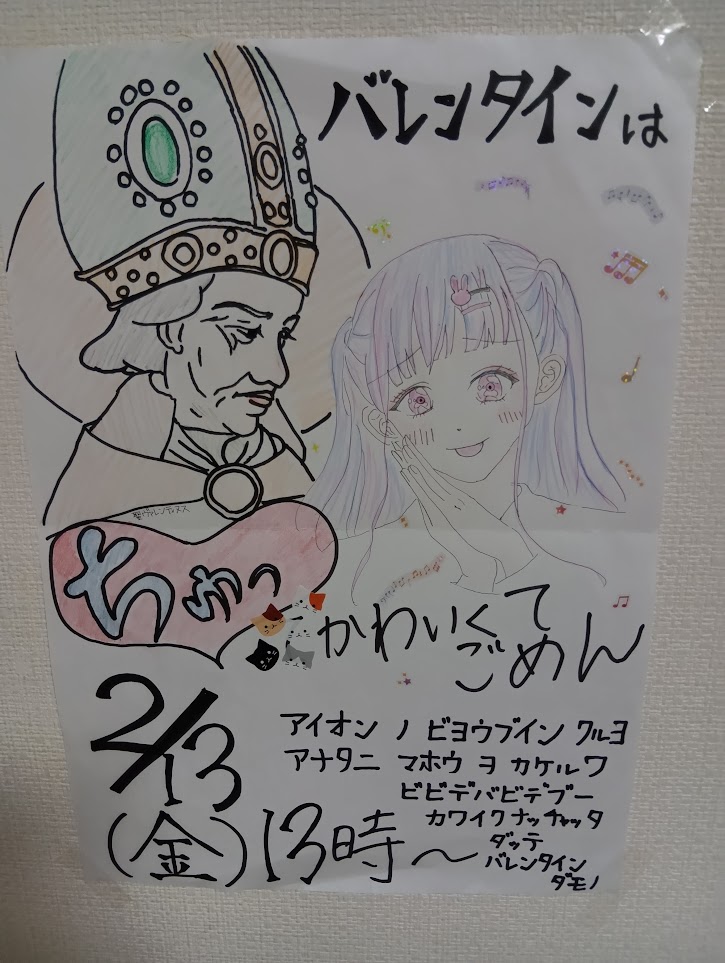 バレンタインは
聖ヴァレンティヌス
ちゅっ
かわいくて
ごめん
2/13
(金)13時〜
アイオン ノ ビヨウブイン クルヨ
アナタニ マホウ ヲ カケルワ
ビビデバビデブー
カワイクナッチャッタ
ダッテ
バレンタイン
ダモノ